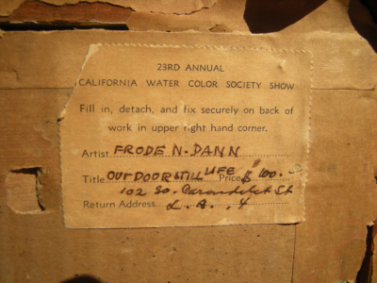 23RD ANNUAL
CALIFORNIA WATER COLOR SOCIETY SHOW
Fill in, detach, and fix securely on back of
work in upper right hand corner.
Artist FRODE N. DANN
Title OUTDOOR STILL LIFE Price $100.
102 So. Carondelet St
Return Address L. A. 4